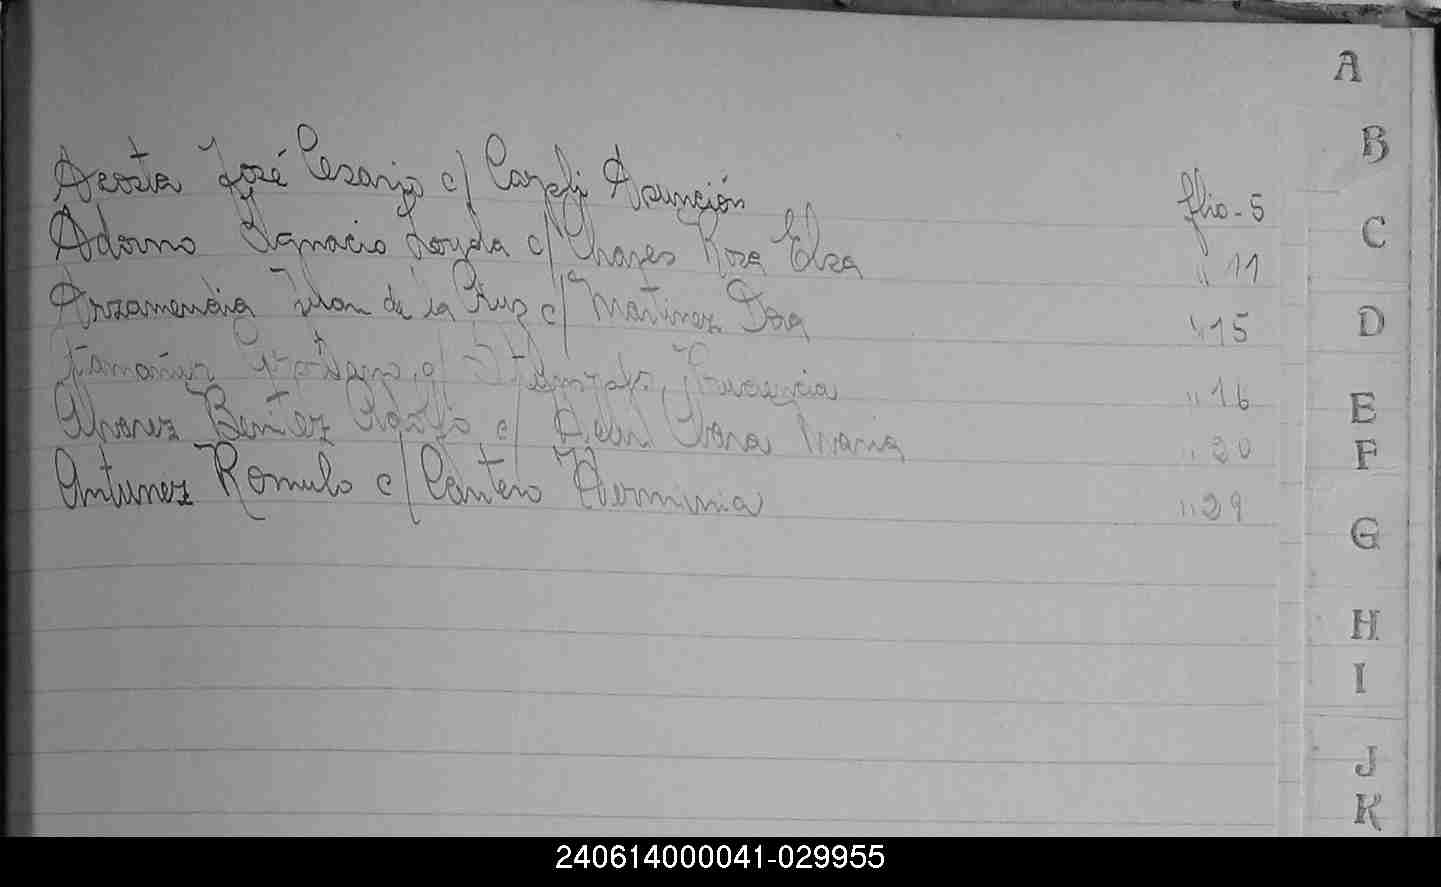 A
B
C
D
E
F
G
H
I
J
K
Acosta José Cesario c/ Asunción flio - 5
Adorno Ignacio Loyola c/ Chaves Rosa Elsa " 11
Arzamendia Juan de la Cruz c/ Martinez " 15
c/ " 16
Alvarez Benitez c/ Juana Maria " 20
Antunez Romulo c/ Cantero Herminia " 29
240614000041-029955